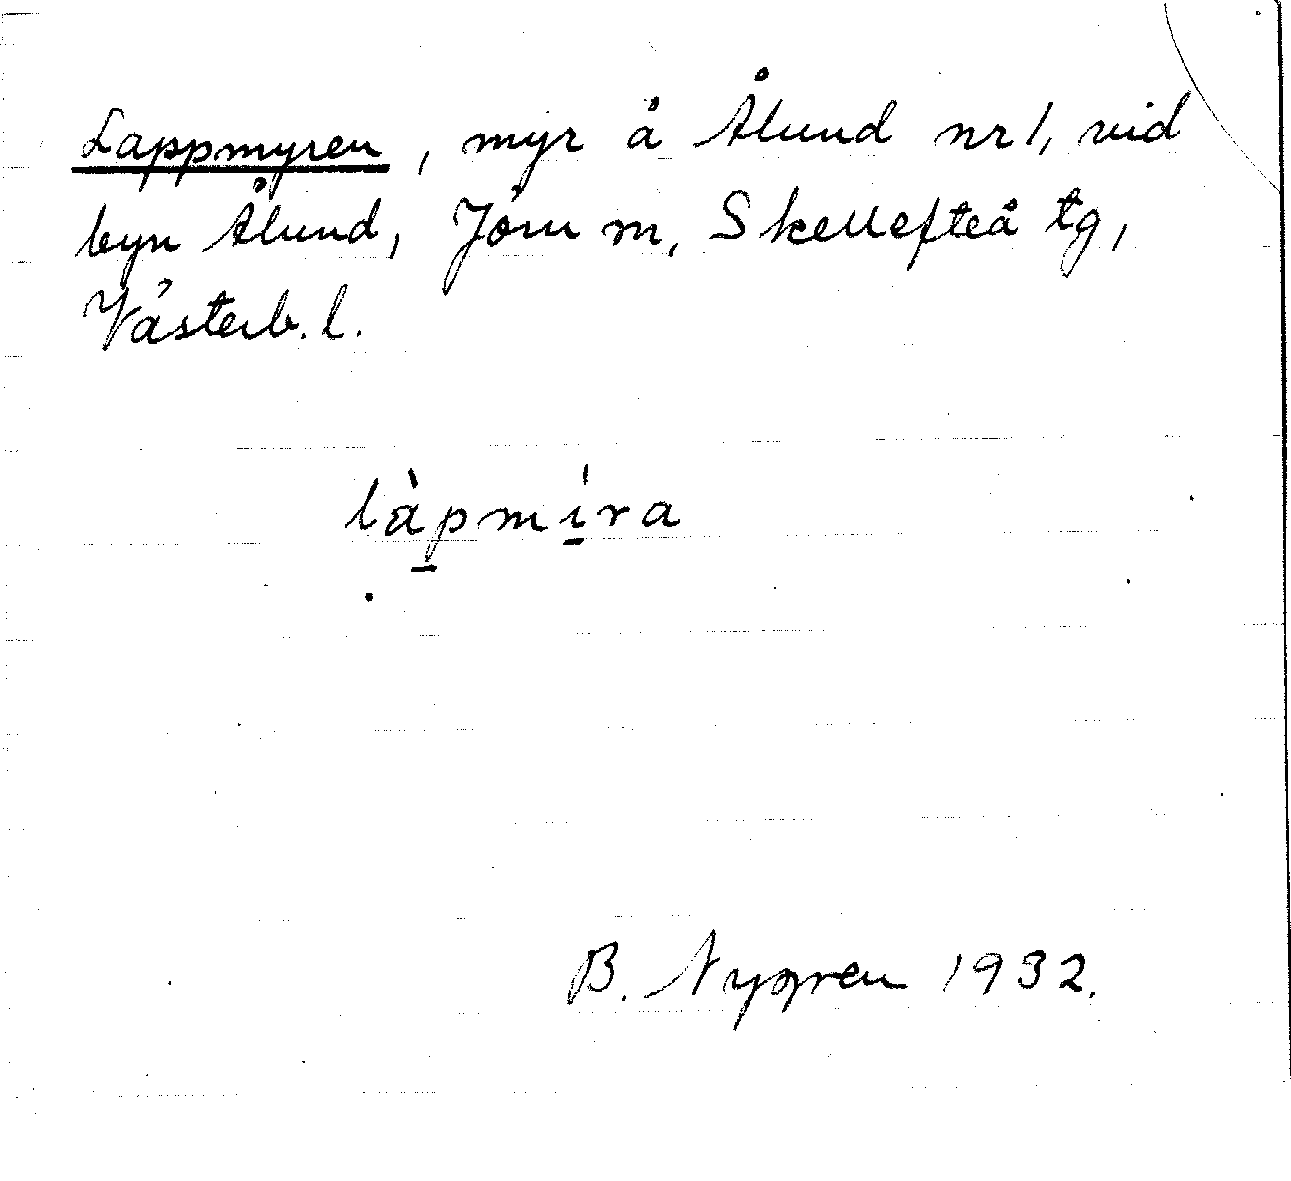 Lappmyren, myr å Ålund nr 1, vid
byn Ålund, Jörn m, Skellefteå tg,
Västerb. l.
làp̲mí̲ra
B. Nygren 1932.